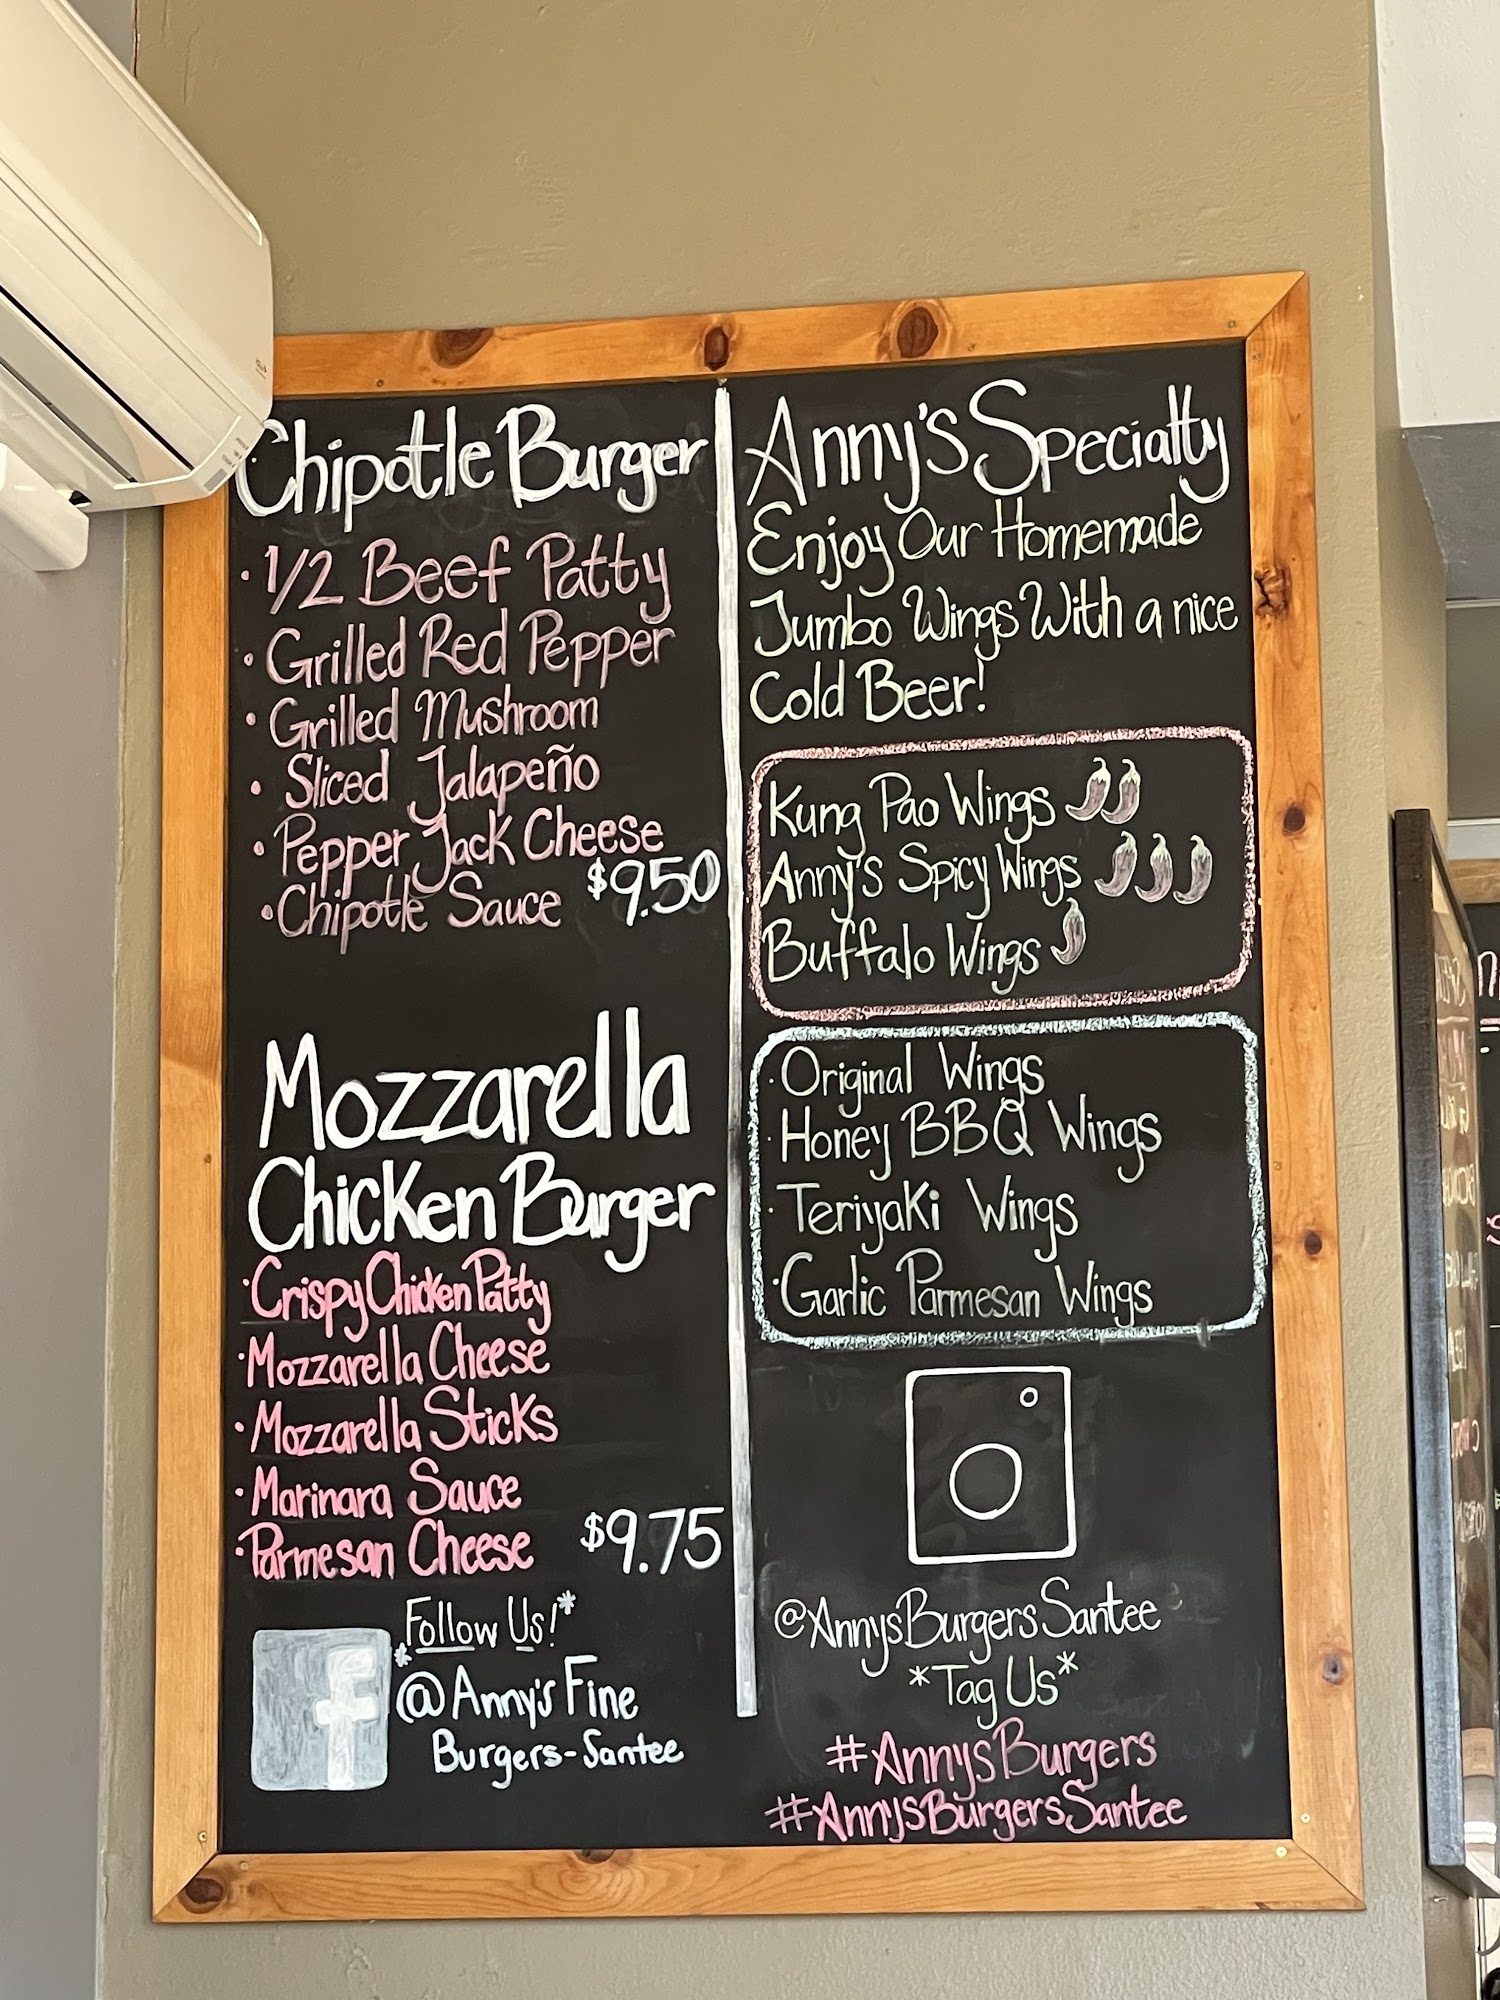 Chipotle Burger
· 1/2 Beef Patty
· Grilled Red Pepper
· Grilled Mushroom
· Sliced Jalapeño
· Pepper Jack Cheese
· Chipotle Sauce $9.50
Mozzarella
Chicken Burger
· Crispy Chicken Patty
· Mozzarella Cheese
· Mozzarella Sticks
· Marinara Sauce
· Parmesan Cheese $9.75
*Follow Us!*
@Anny's Fine
Burgers-Santee
f
Anny's Specialty
Enjoy Our Homemade
Jumbo Wings With a nice
Cold Beer!
Kung Pao Wings
Anny's Spicy Wings
Buffalo Wings
· Original Wings
· Honey BBQ Wings
· Teriyaki Wings
· Garlic Parmesan Wings
@AnnysBurgersSantee
*Tag Us*
#AnnysBurgers
#AnnysBurgersSantee